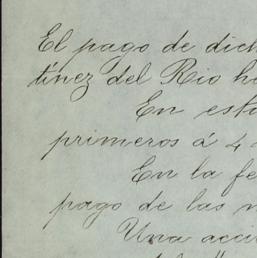 El pago de dich
tínez del Rio h
En est
primeros á 4
En la fe
pago de las
Una acci